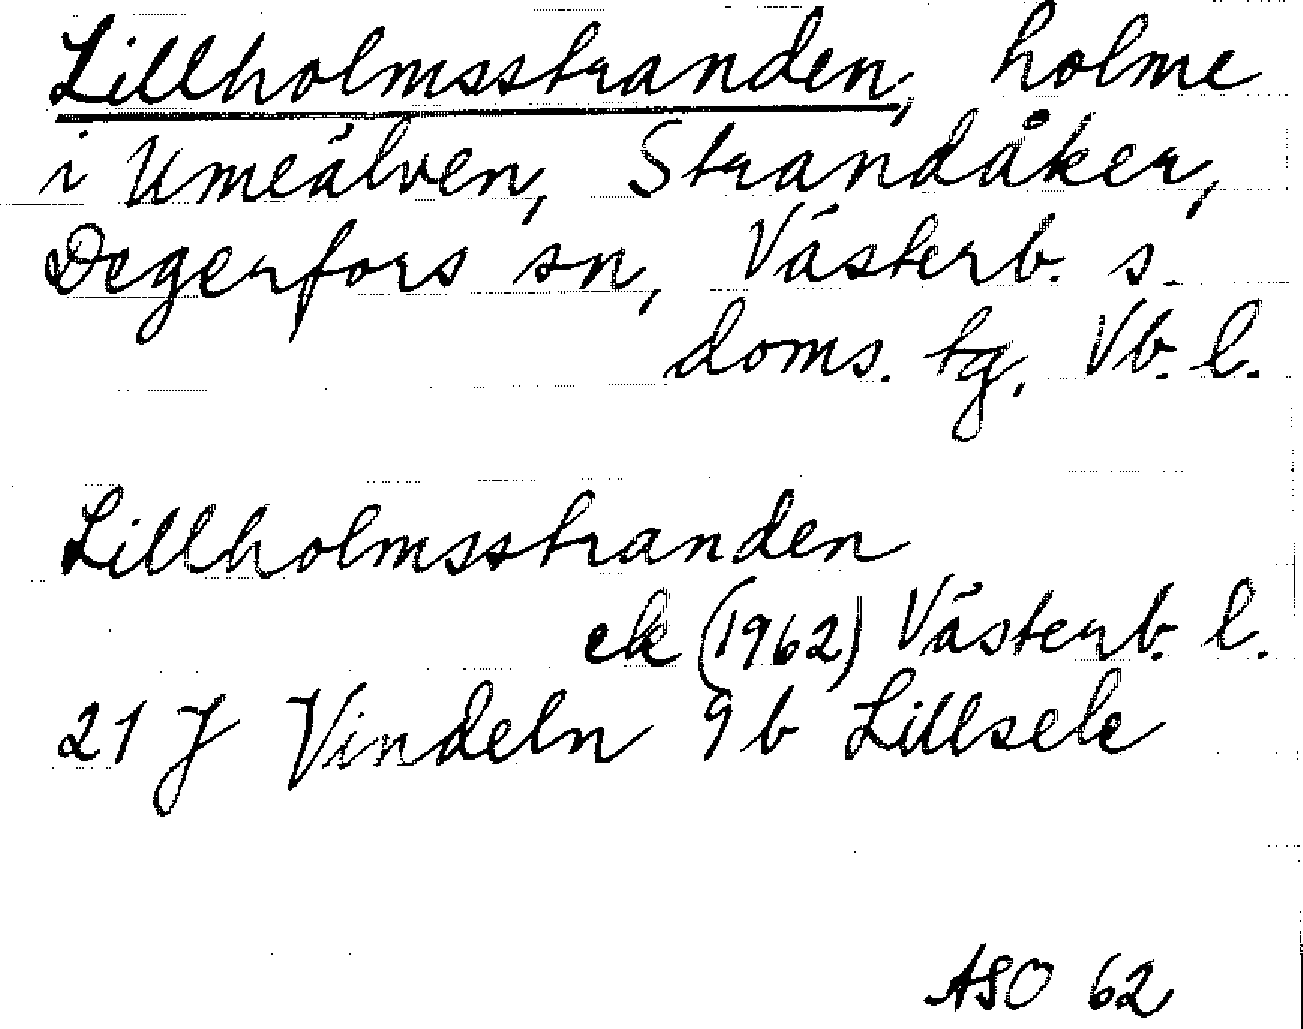 Lillholmsstranden, holme
i Umeälven, Strandåker,
Degerfors sn, Västerb. s.
doms. tg, Vb. l.
Lillholmsstranden
ek (1962) Västerb. l.
21 J Vindeln 9 b Lillsele
ASO 62